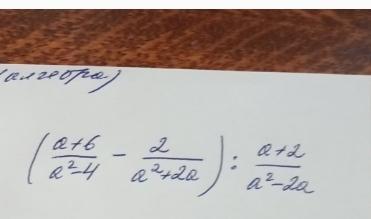 (алгебра)
(\frac{a+6}{a^2-4} - \frac{2}{a^2+2a}) : \frac{a+2}{a^2-2a}